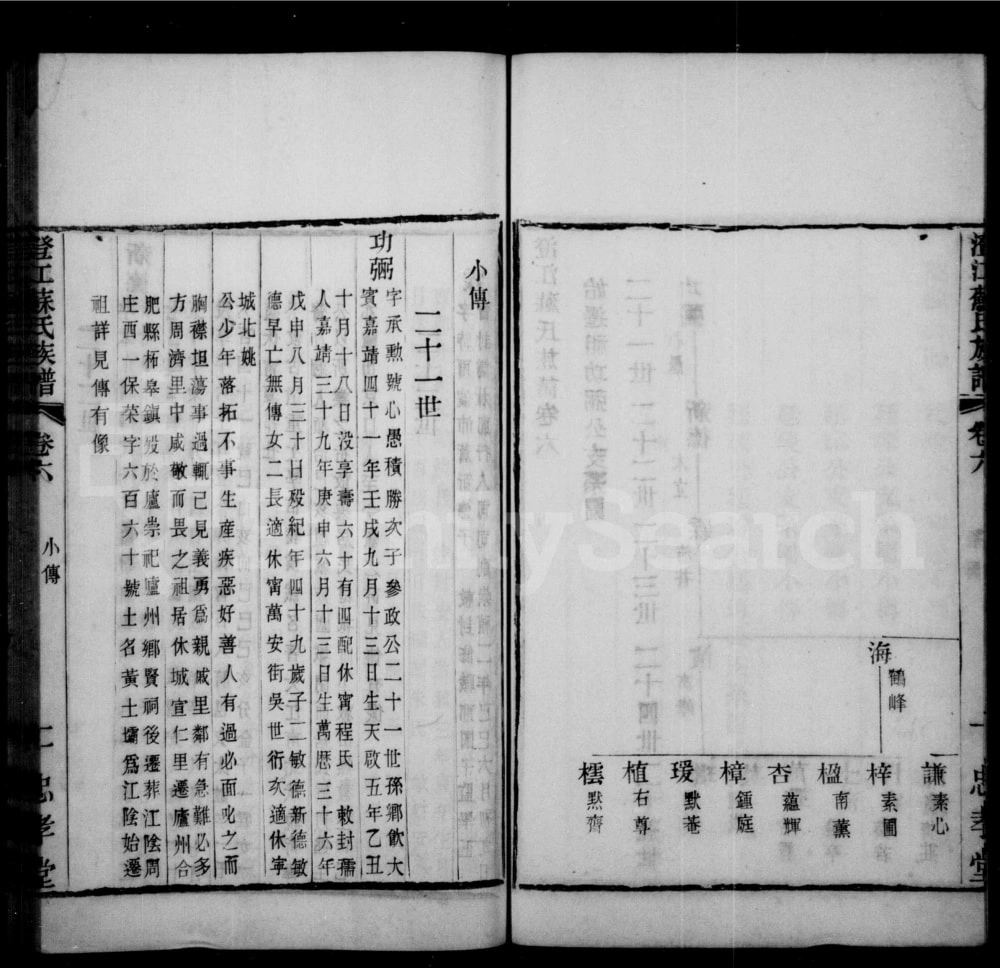 澄江蘇氏族譜
卷六
忠孝堂
海 鶴峰
謙 素心
梓 素圃
楹 南薰
杏 蘊輝
樟 鍾庭
瑗 默菴
植 右尊
檽 默齋
小傳
二十一世
功弼
字承勲號心愚積勝次子參政公二十一世孫鄉飲大
賓嘉靖四十一年壬戌九月十三日生天啟五年乙丑
十月十八日沒享壽六十有四配休甯程氏 敕封孺
人嘉靖三十九年庚申六月十三日生萬曆三十六年
戊申八月三十日殁紀年四十九歲子二敏德新德敏
德早亡無傳女二長適休甯萬安街吳世衍次適休寧
城北姚
公少年落拓不事生産疾惡好善人有過必面叱之而
胸襟坦蕩事過輒已見義勇爲親戚里鄰有急難必多
方周濟里中咸敬而畏之祖居休城宣仁里遷廬州合
肥縣柘皋鎮殁於廬崇祀廬州鄉賢祠後遷葬江陰周
庄酉一保荣字六百六十號土名黃土壩爲江陰始遷
祖詳見傳有像
澄江蘇氏族譜
卷六
小傳
忠孝堂